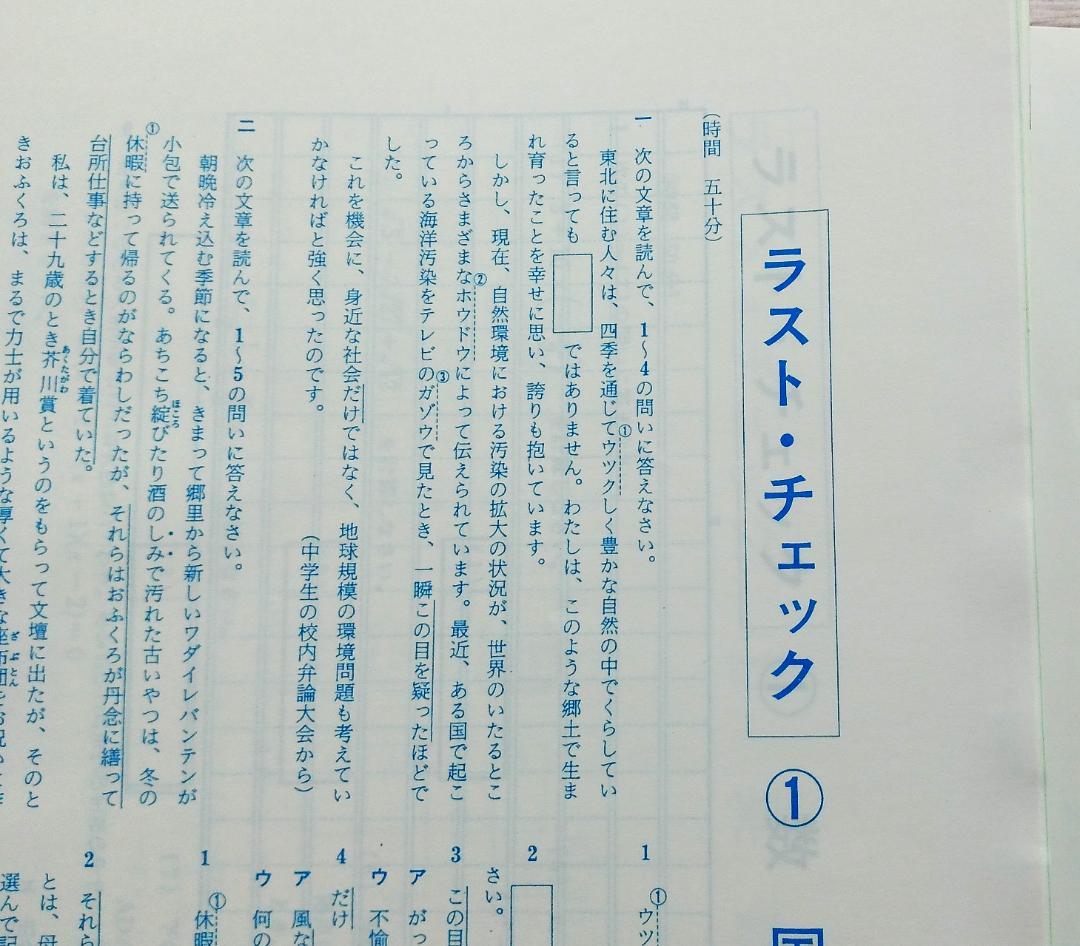 ラスト・チェック ①
(時間 五十分)
一 次の文章を読んで、1〜4の問いに答えなさい。
東北に住む人々は、四季を通じて①ウツクしく豊かな自然の中でくらしてい
ると言っても ではありません。わたしは、このような郷土で生ま
れ育ったことを幸せに思い、誇りも抱いています。
しかし、現在、自然環境における汚染の拡大の状況が、世界のいたるとこ
ろからさまざまな②ホウドウによって伝えられています。最近、ある国で起こ
っている海洋汚染をテレビの③ガゾウで見たとき、一瞬この目を疑ったほどで
した。
これを機会に、身近な社会だけではなく、地球規模の環境問題も考えてい
かなければと強く思ったのです。
(中学生の校内弁論大会から)
二 次の文章を読んで、1〜5の問いに答えなさい。
朝晩冷え込む季節になると、きまって郷里から新しいワダイレバンテンが
小包で送られてくる。あちこち綻びたり酒のしみで汚れた古いやつは、冬の
①休暇に持って帰るのがならわしだったが、それらはおふくろが丹念に繕って
台所仕事などするとき自分で着ていた。
私は、二十九歳のとき芥川賞というのをもらって文壇に出たが、そのと
きおふくろは、まるで力士が用いるような厚くて大きな座布団を
1 ①ウツ
2
さい。
3 この目
ア がっ
ウ 不愉
4 だけ
ア 風な
ウ 何の
1 ①休暇
2 それら
とは、母
選んで記